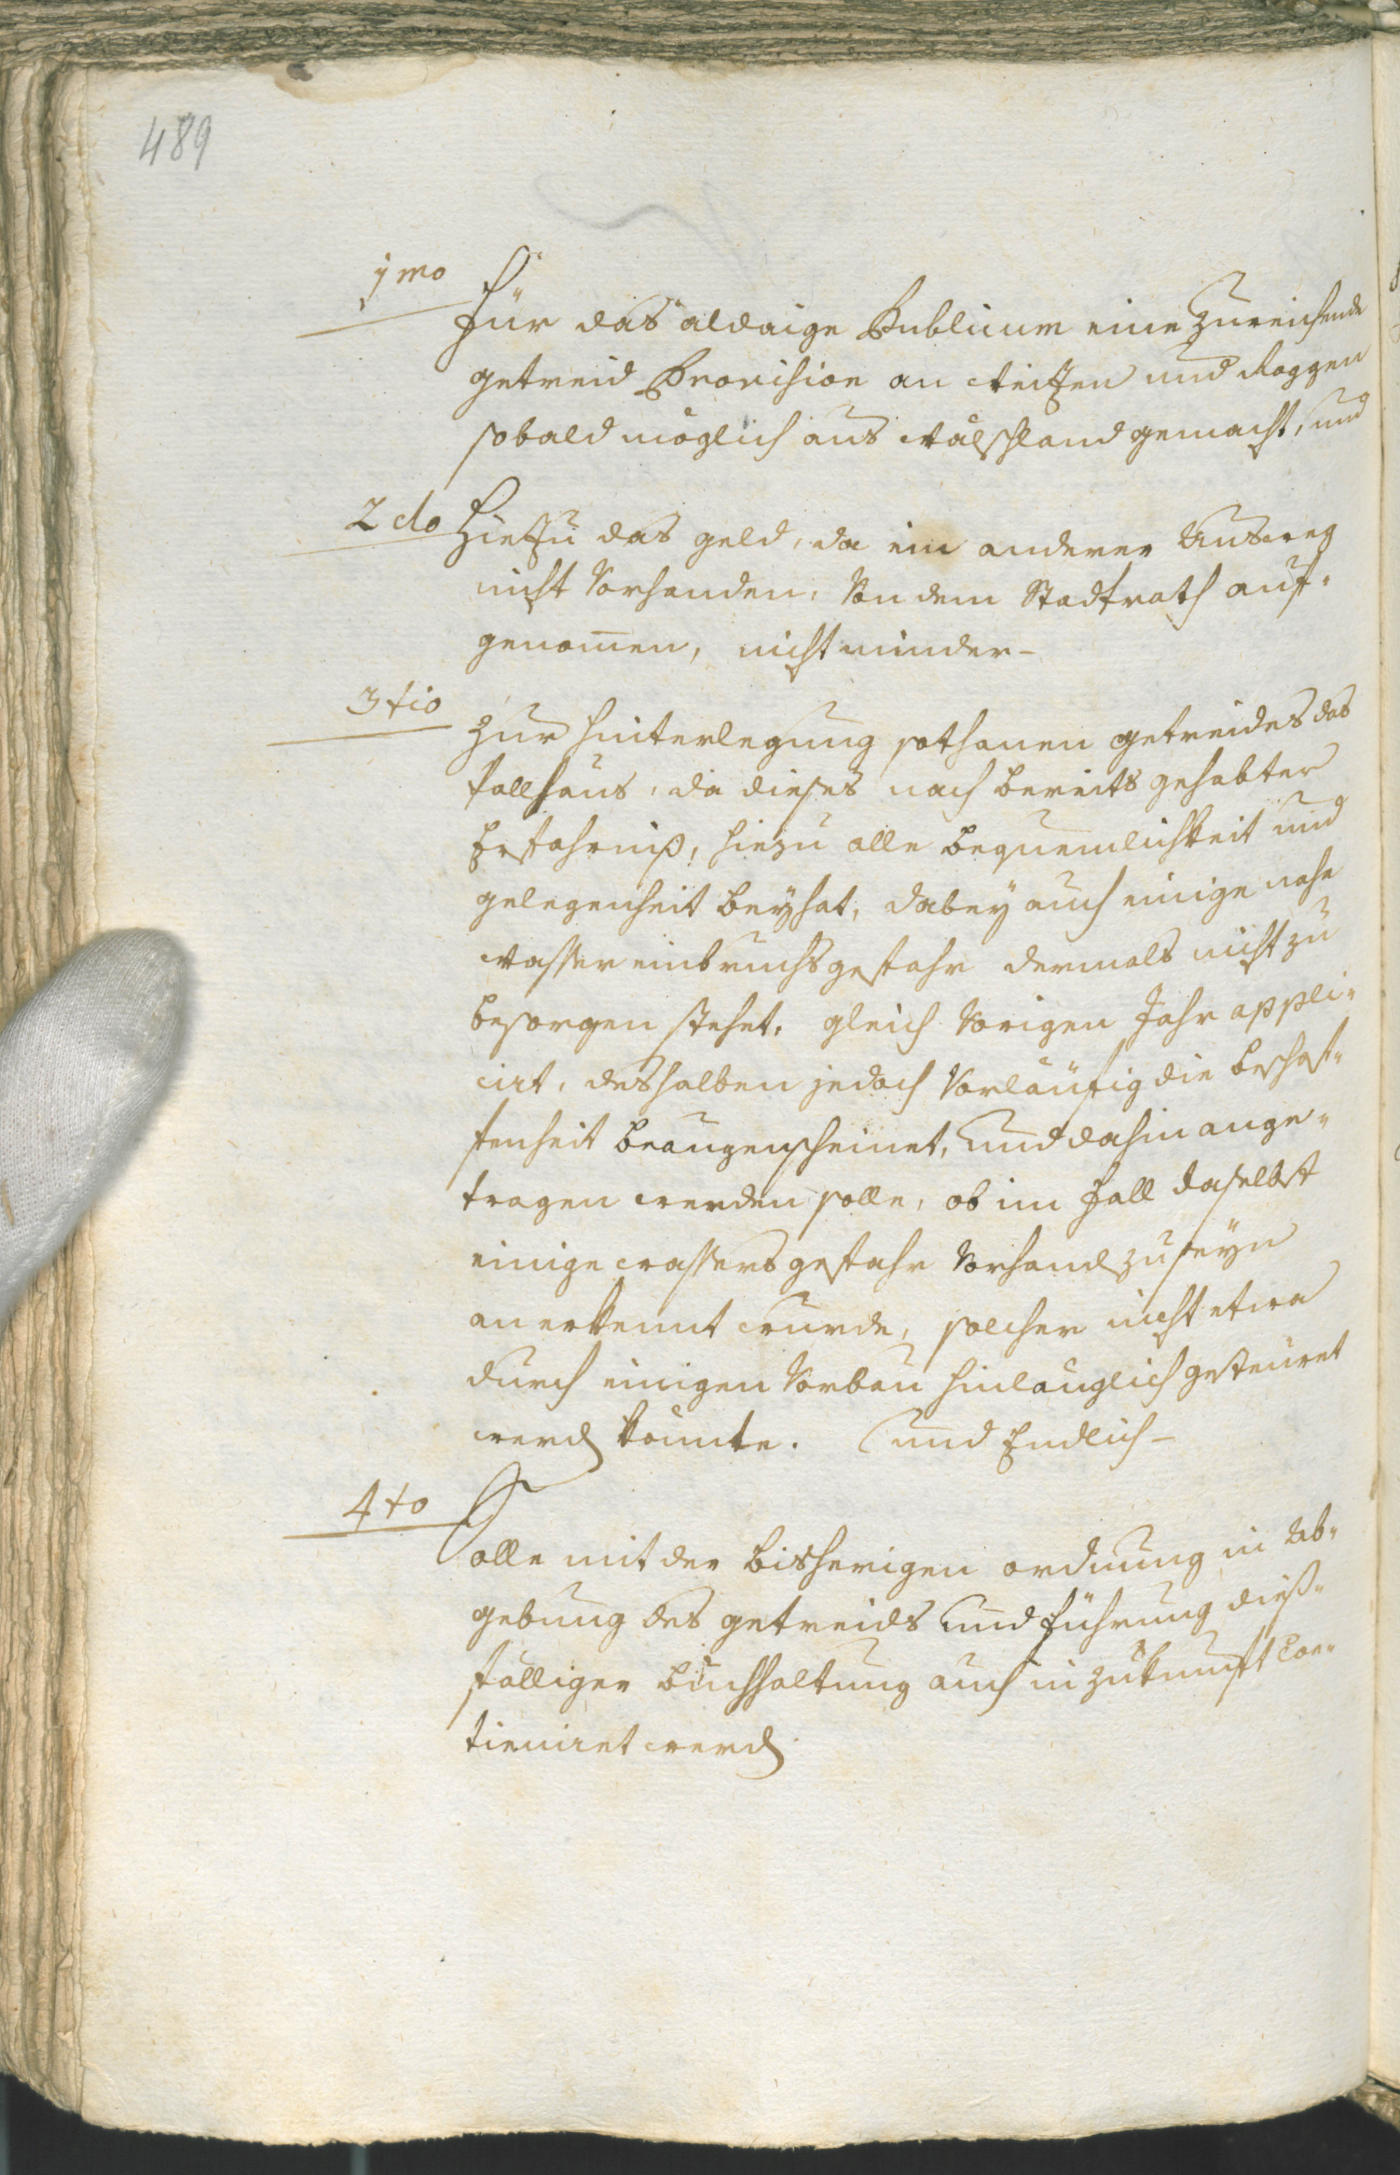 489
1mo
Für das aldaige Publicum eine Zureichende
getreid Provision an Weitzen und Roggen
sobald möglich aus Wälschland gemacht, und
2do Hiezu das geld, da ein anderer Ausweeg
nicht Vorhanden, Von dem Stadtrath auf-
genom̄en, nicht minder-
3tio
Zur hinterlegung sothanen getreides das
Fallhaus, da dieses nach bereits gehabter
Erfahrniß, hiezu alle bequemlichkeit und
gelegenheit beyhat, dabey auch einige nahe
Wassereinbruchsgefahr dermals nicht zu
besorgen stehet, gleich Vorigen Jahr appli-
cirt, deshalben jedoch Vorläufig die beschaf-
fenheit beaugenscheinet, und dahin ange-
tragen werden solle, ob im Fall daselbst
einige Wassersgefahr Vorhand zu seyn
anerkennt wurde, solcher nicht etwa
durch einigen Vorbau hinlänglich gesteuret
werd könnte. und Endlich-
4to
Solle mit der bisherigen ordnung in Ab-
gebung des getreids und führung dieß-
fälliger buchhaltung auch in zukunft Con-
tinuiret werd